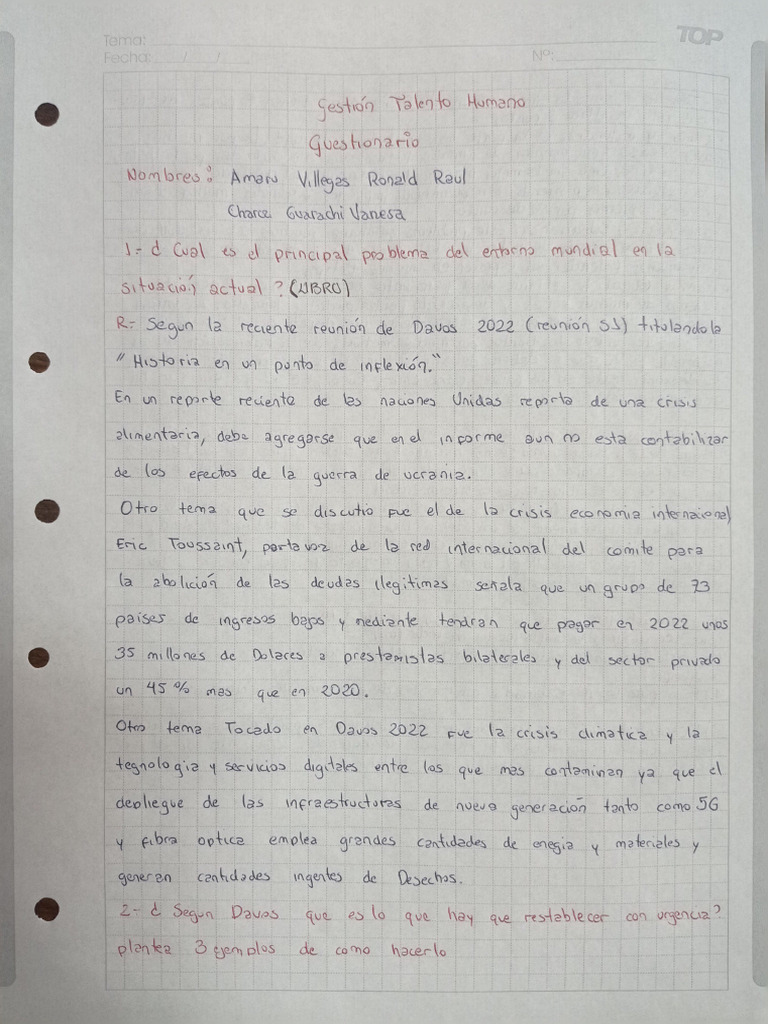 Tema:
TOP
Fecha: / /
Nº:
Gestión Talento Humano
Guestionario
Nombres: Amaru Villegas Ronald Raul
Charca Guarachi Vanesa
1.- ¿ Cual es el principal problema del entorno mundial en la
situación actual ? (LIBRO)
R= Segun la reciente reunión de Davos 2022 (reunión 51) titulandola
"Historia en un punto de inflexión."
En un reporte reciente de las naciones Unidas reporta de una crisis
alimentaria, debe agregarse que en el informe aun no esta contabilizar
de los efectos de la guerra de ucrania.
Otro tema que se discutio fue el de la crisis economia internacional
Eric Toussaint, portavoz de la red internacional del comite para
la abolición de las deudas ilegitimas señala que un grupo de 73
paises de ingresos bajos y mediante tendran que pagar en 2022 unos
35 millones de Dolares a prestamistas bilaterales y del sector privado
un 45 % mas que en 2020.
Otro tema Tocado en Davos 2022 fue la crisis climatica y la
tegnologia y servicios digitales entre los que mas contaminan ya que el
depliegue de las infraestructoras de nueva generación tanto como 5G
y fibra optica emplea grandes cantidades de enegia y materiales y
generan cantidades ingentes de Desechos.
2- ¿ Segun Davos que es lo que hay que restablecer con urgencia?
plantea 3 ejemplos de como hacerlo